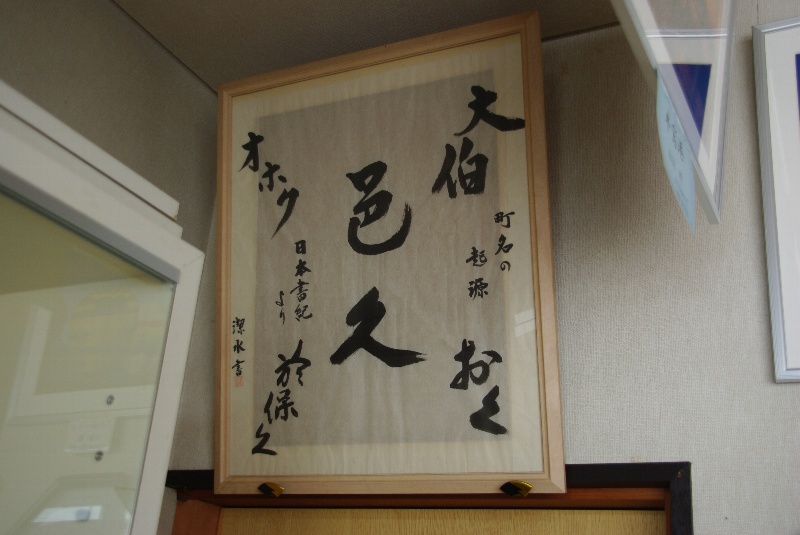 大伯
町名の
起源
おく
邑久
オホク
日本書紀
より
於保久
潔水書